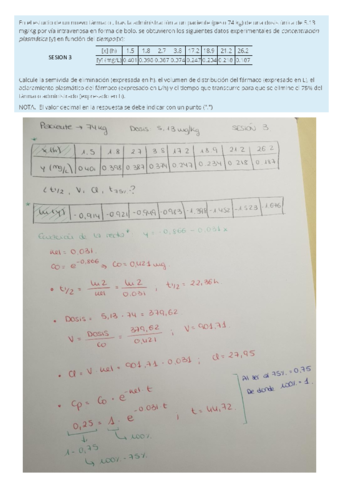 En el estudio de un nuevo fármaco, tras la administración a un paciente (peso 74 kg) de una dosis única de 5.13
mg/kg por vía intravenosa en forma de bolo, se obtuvieron los siguientes datos experimentales de concentración
plasmática (y) en función del tiempo (x):
SESION 3
[x] (h) 1.5 1.8 2.7 3.5 17.2 18.9 21.2 26.2
[y] (mg/L) 0.401 0.398 0.387 0.379 0.247 0.234 0.218 0.187
Calcule la semivida de eliminación (expresada en h), el volumen de distribución del fármaco (expresado en L), el
aclaramiento plasmático del fármaco (expresado en L/h) y el tiempo que transcurre para que se elimine el 75% del
fármaco administrado (expresado en h).
NOTA. El valor decimal en la respuesta debe indicar con un punto (".")
Paciente → 74 kg Dosis 5.13 mg/kg SESION 3
x (h) 1.5 1.8 2.7 3.5 17.2 18.9 21.2 26.2
y (mg/L) 0.401 0.398 0.387 0.379 0.247 0.234 0.218 0.187
¿ t1/2 , V, Cl, t75% ?
ln (y) -0,914 -0.921 -0.949 -0.969 -1.398 -1.452 -1.523 -1.676
y = -0,866 - 0.031x
Kel = 0.031
Co = e^-0.866 → Co = 0,421 mg
• t1/2 = ln 2 / kel = ln 2 / 0.031 ; t1/2 = 22,36h
• Dosis = 5,13 · 74 = 379,62
V = Dosis / Co = 379,62 / 0,421 ; V = 901.71
• Cl = V · kel = 901.71 · 0.031 ; Cl = 27,95
• Cp = Co · e^-kel · t
0,25 = 1 · e^-0.031 t ; t = 44,72
1 - 0,75 100%
↳ 100% - 75%
75% = 0.75
De donde 100% = 1.